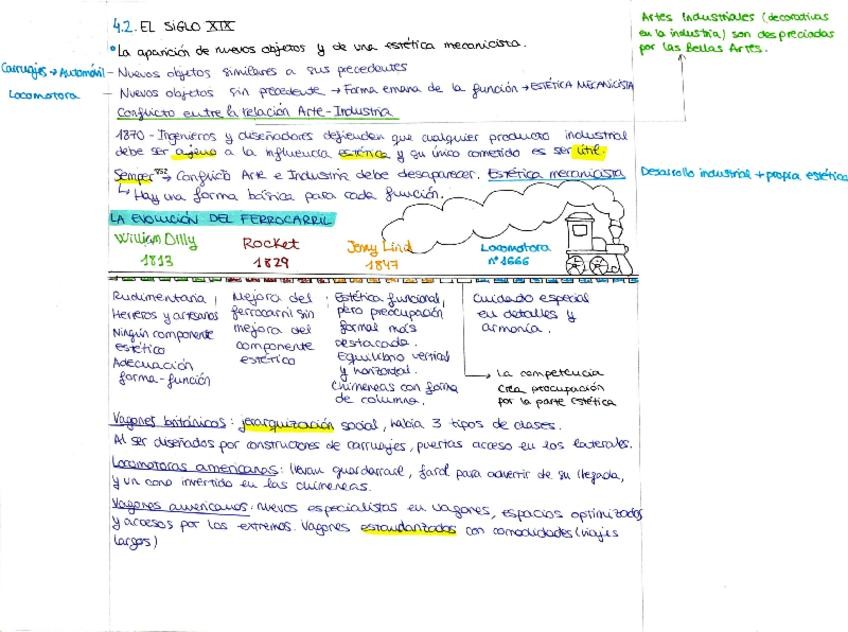 4.2. EL SIGLO XIX
Artes Industriales (decorativas
en la industria) son despreciadas
por las Bellas Artes.
• La aparición de nuevos objetos y de una estética mecanicista.
Carruajes → Automóvil – Nuevos objetos similares a sus precedentes
Locomotora – Nuevos objetos sin precedente → Forma emana de la función → ESTÉTICA MECANICISTA
Conflicto entre la relación Arte-Industria
1870 - Ingenieros y diseñadores defienden que cualquier producto industrial
debe ser ajeno a la influencia estética y su único cometido es ser útil.
Semper 1852 → Conflicto Arte e Industria debe desaparecer. Estética mecanicista
Desarrollo industrial + propia estética
↳ Hay una forma básica para cada función.
LA EVOLUCIÓN DEL FERROCARRIL
William Dilly
1813
Rocket
1829
Jenny Lind
1847
Locomotora
nº 1666
Rudimentaria,
Herreros y artesanos
Ningún componente
estético
Adecuación
forma-función
Mejora del
ferrocarril sin
mejora del
componente
estético
Estética funcional,
pero preocupación
formal más
destacada.
Equilibrio vertical
y horizontal.
Chimeneas con forma
de columna.
Cuidado especial
en detalles y
armonía.
La competencia
crea preocupación
por la parte estética
Vagones británicos: jerarquización social, había 3 tipos de clases.
Al ser diseñados por constructores de carruajes, puertas acceso en los laterales.
Locomotoras americanas: llevan guardarrail, farol para advertir de su llegada,
y un cono invertido en las chimeneas.
Vagones americanos: nuevos especialistas en vagones, espacios optimizados
y accesos por los extremos. Vagones estandarizados con comodidades (viajes
largos)